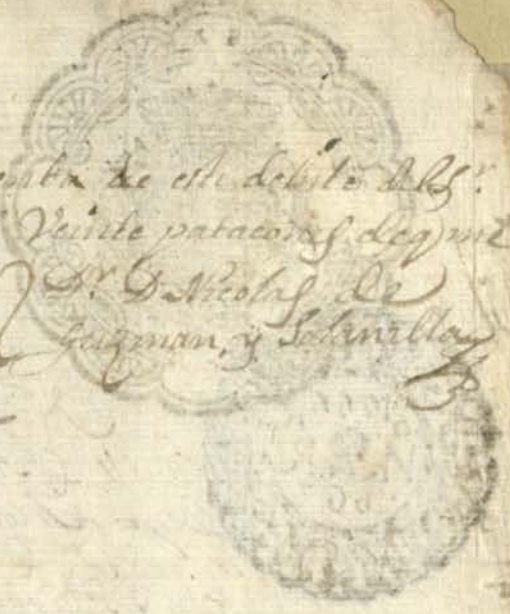 enta de este debito del Sr
Veinte patacones, de q me
Dr. D. Nicolas de
Guzman, y Solanilla